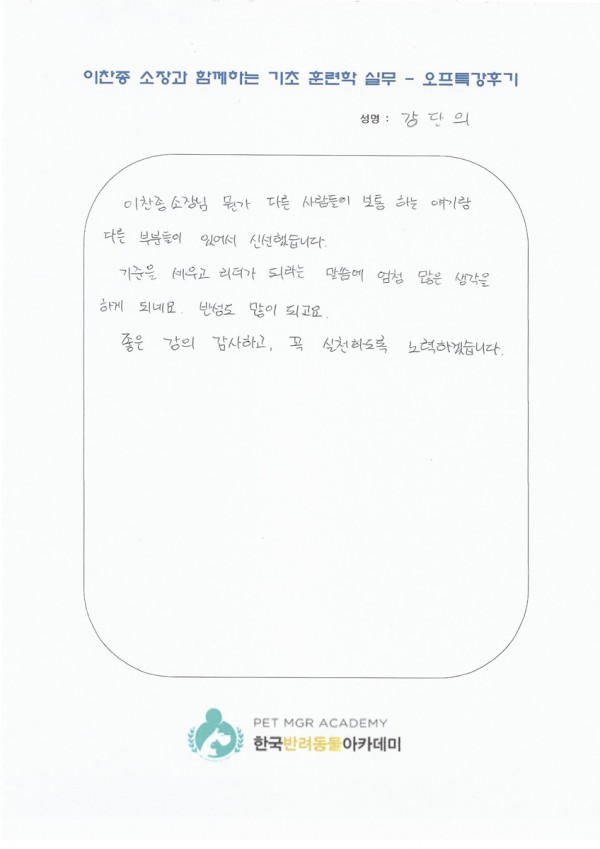 이찬종 소장과 함께하는 기초 훈련학 실무 - 오프특강후기
성명 : 강단의
이찬종 소장님 뭔가 다른 사람들이 보통 하는 얘기랑
다른 부분들이 있어서 신선했습니다.
기준을 세우고 리더가 되라는 말씀에 엄청 많은 생각을
하게 되네요. 반성도 많이 되고요.
좋은 강의 감사하고, 꼭 실천하도록 노력하겠습니다.
PET MGR ACADEMY
한국반려동물아카데미